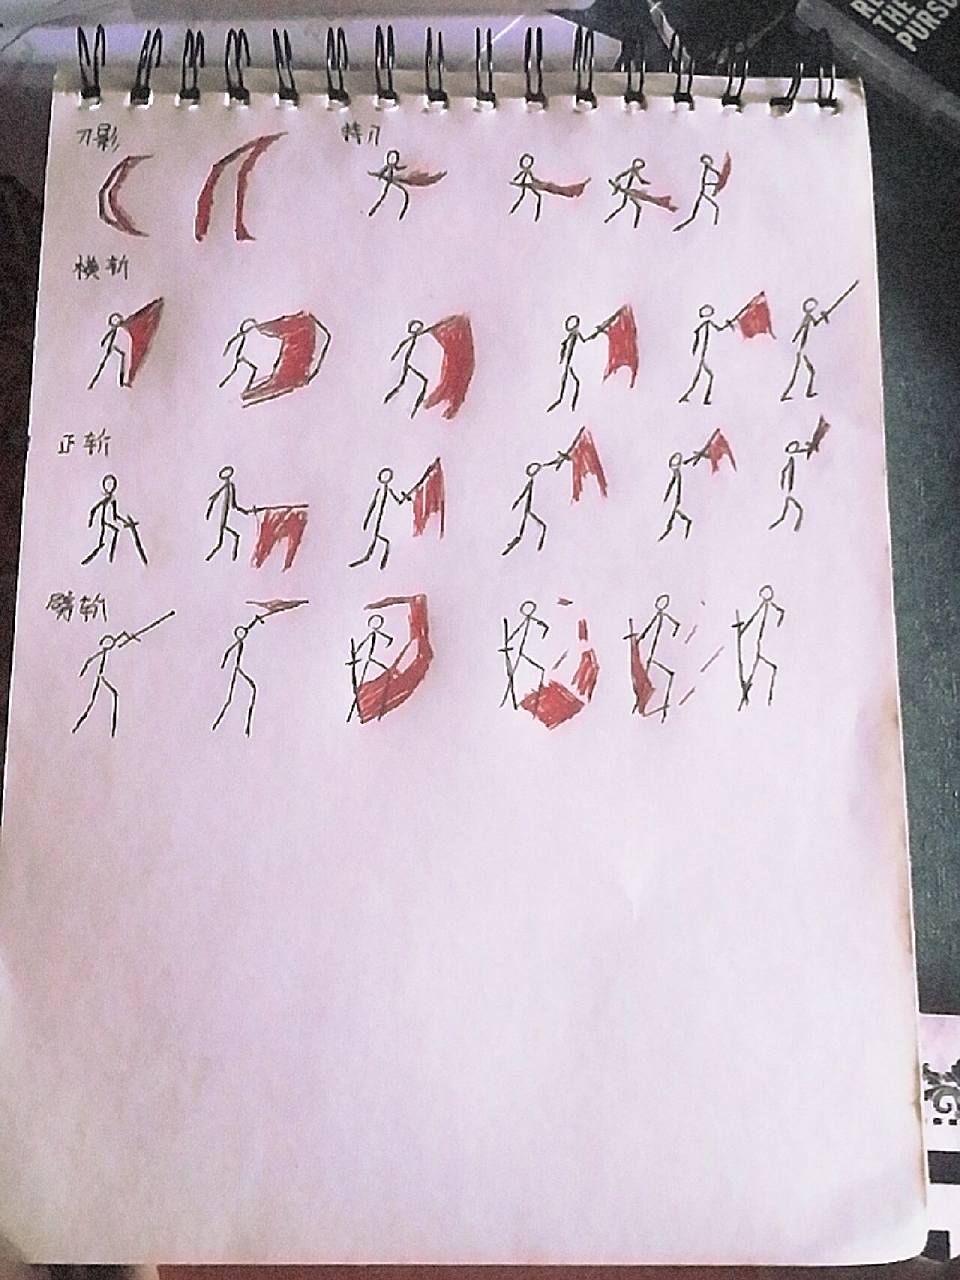 刀影
持刀
横斩
正斩
劈斩
THE